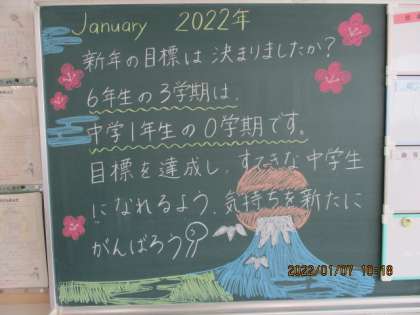 January 2022年
新年の目標は決まりましたか？
6年生の3学期は、
中学1年生の0学期です。
目標を達成し、すてきな中学生
になれるよう、気持ちを新たに
がんばろう
2022/01/07